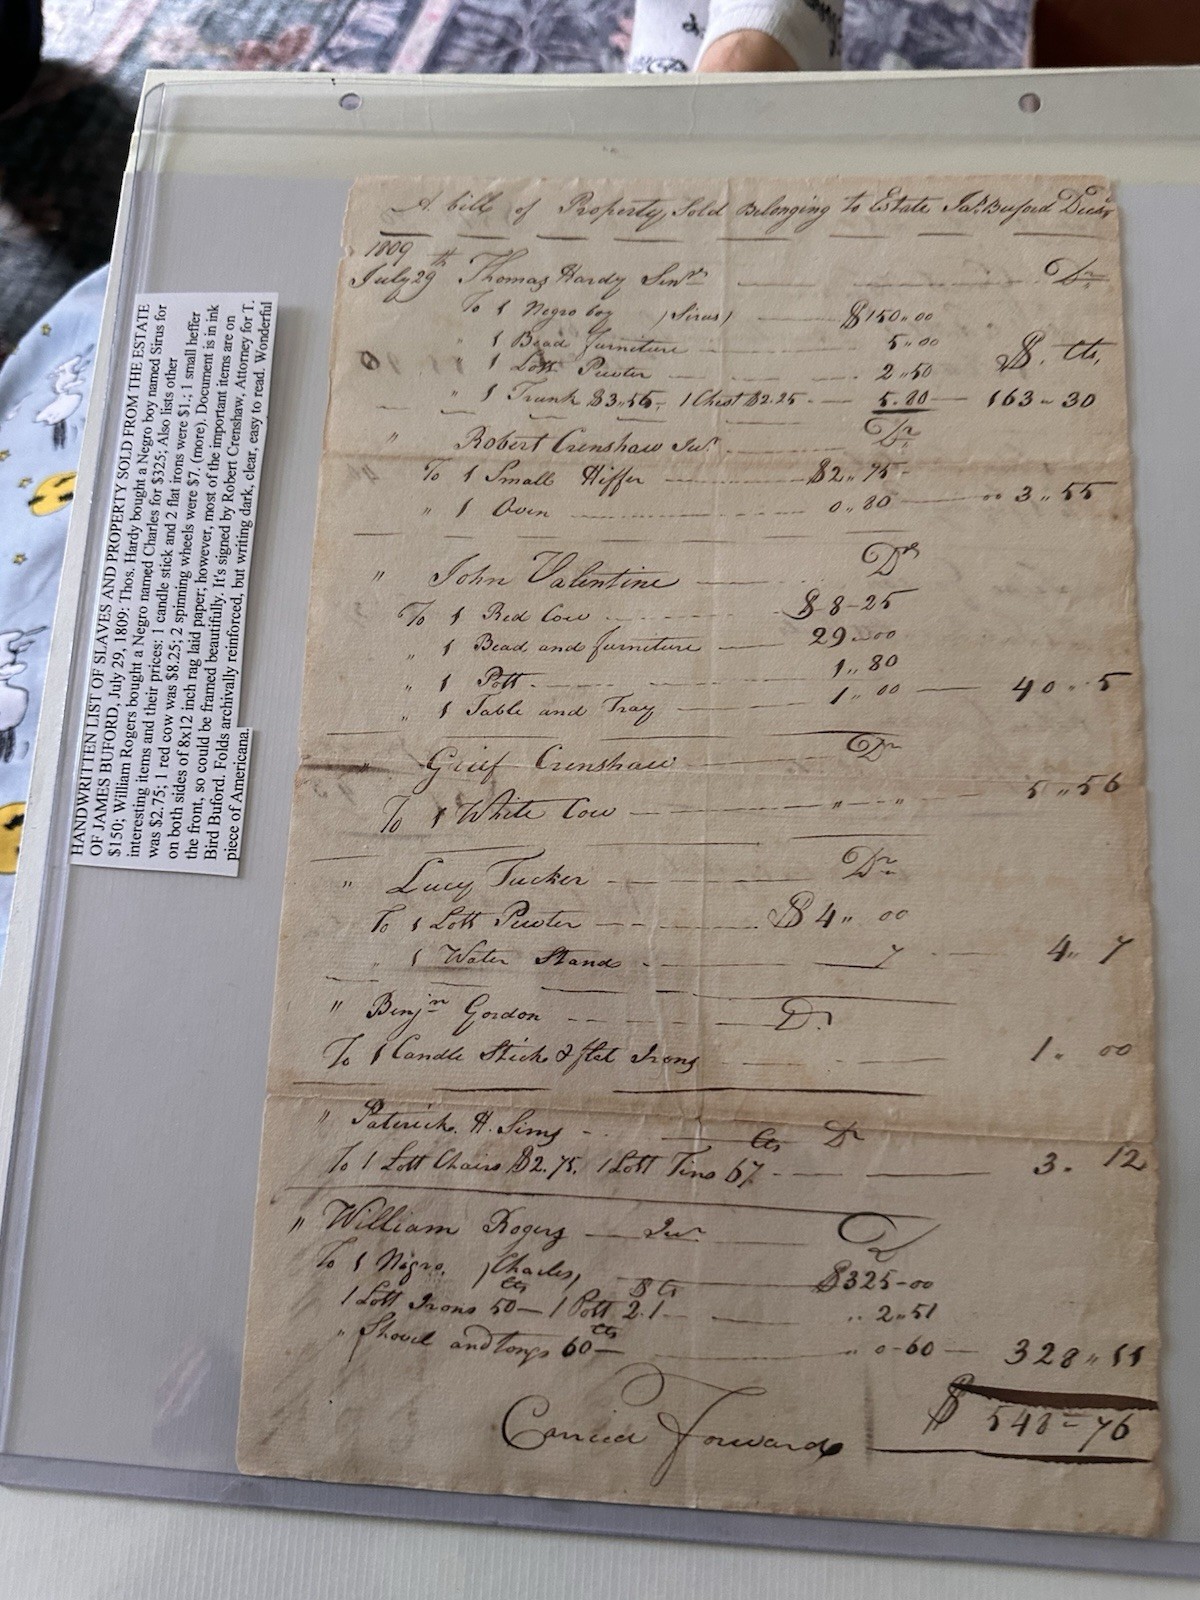 A bill of Property Sold Belonging to Estate Jas. Buford Decd
1809
July 29th Thomas Hardy Senr. Dr.
To 1 Negro boy (Sirus) $150"00
" 1 Bead furniture 5"00
" 1 Lott Pewter 2"50 $. Cts,
" 1 Trunk $3,55 1 Chest $2.25 5.80 163-30
" Robert Crenshaw Junr. Dr.
To 1 Small Hiffer $2"75
" 1 Oven 0"80 3"55
" John Valentine Dr
To 1 Red Cow $8-25
" 1 Bead and furniture 29"00
" 1 Pott 1"80
" 1 Table and Tray 1"00 40"5
" Grief Crenshaw Dr
To 1 White Cow " " 5"56
" Lucy Tucker Dr
To 1 Lott Pewter $4"00
" 1 Water Stand 7 4"7
" Benjn Gordon Dr.
To 1 Candle Stick & flat Irons 1.00
" Paterick. H. Sims Cts Dr
To 1 Lott Chairs $2.75. 1 Lott Tins 67 3.12
" William Rogers Junr Dr
To 1 Negro, (Charles) $325-00
1 Lott Irons 50 cts 1 Pott $2.1 Cts 2"51
" Shovel and tongs 60 cts " 0-60 328"11
Carried Forward $548-76
HANDWRITTEN LIST OF SLAVES AND PROPERTY SOLD FROM THE ESTATE
OF JAMES BUFORD, July 29, 1809: Thos. Hardy bought a Negro boy named Sirus for
$150; William Rogers bought a Negro named Charles for $325; Also lists other
interesting items and their prices: 1 candle stick and 2 flat irons were $1.; 1 small heffer
was $2.75; 1 red cow was $8.25; 2 spinning wheels were $7. (more). Document is in ink
on both sides of 8x12 inch rag laid paper; however, most of the important items are on
the front, so could be framed beautifully. It's signed by Robert Crenshaw, Attorney for T.
Bird Buford. Folds archivally reinforced, but writing dark, clear, easy to read. Wonderful
piece of Americana.